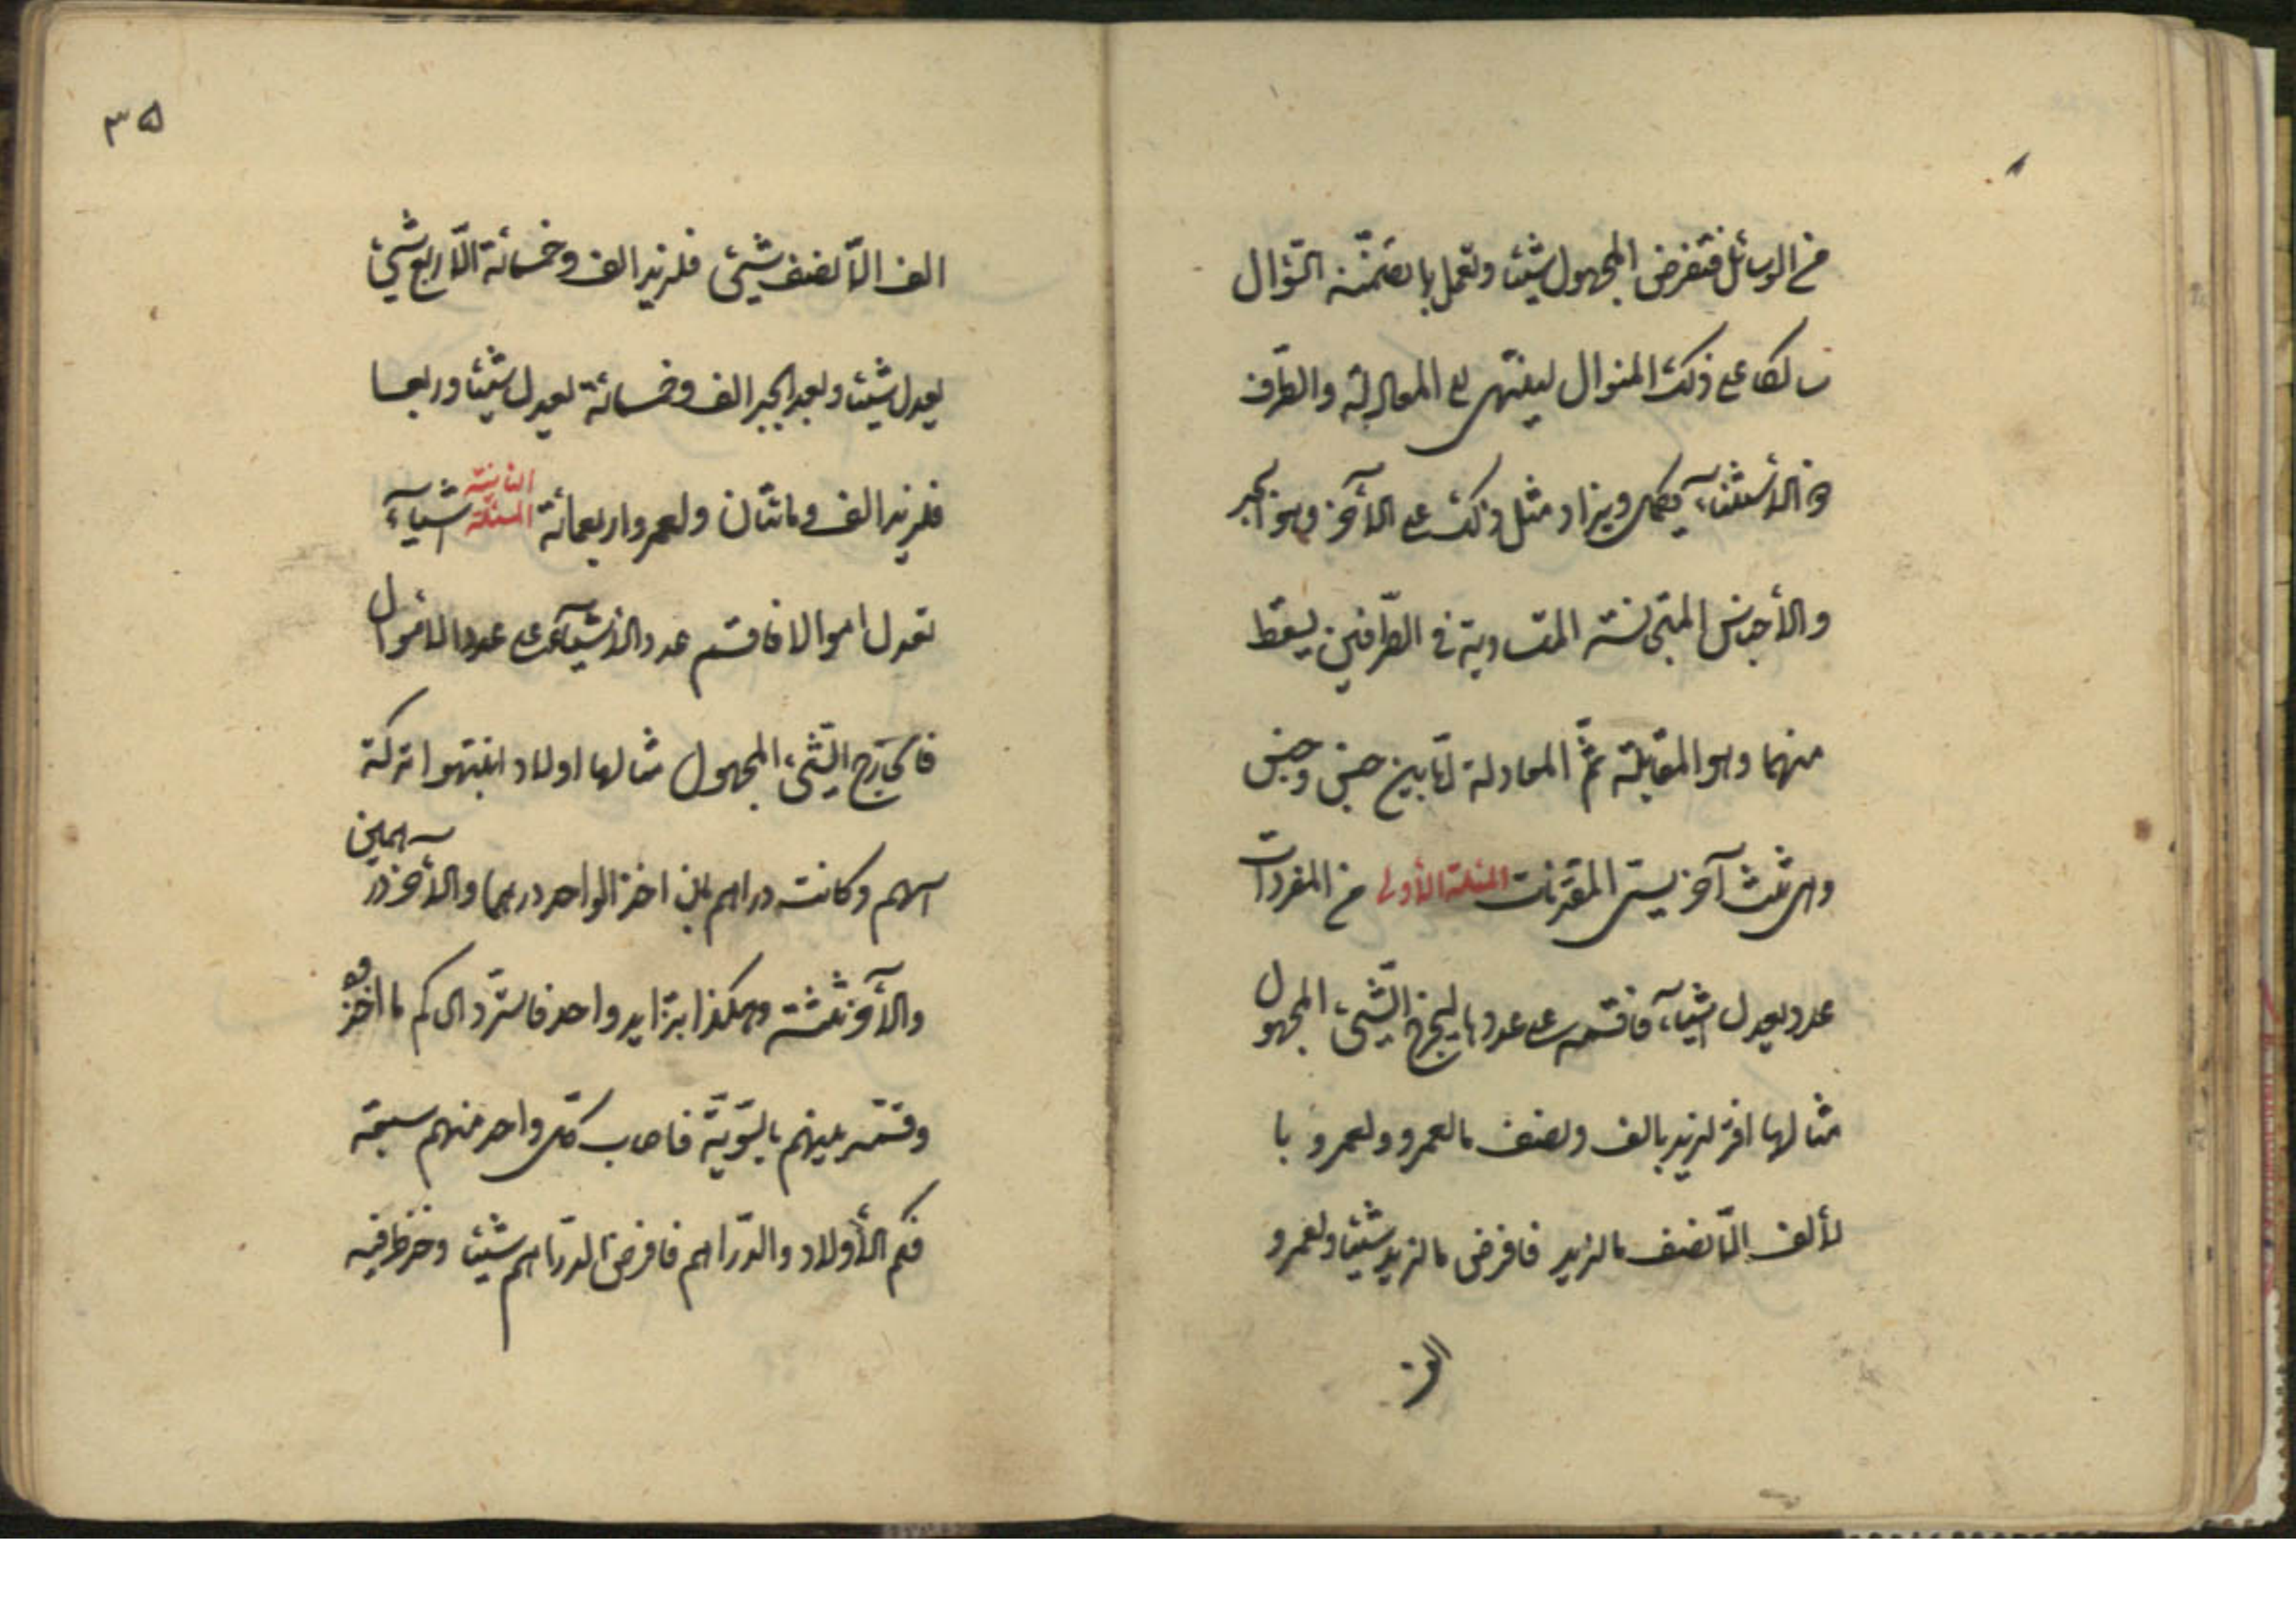 من الوسائل فتفرض المجهول شيئا وتعمل ما تضمّنه السّؤال
سالكا على ذلك المنوال لينتهي الى المعادلة والطّرف
ذو الأستثنآء يكمل ويزاد مثل ذلك على الآخر وهو الجبر
والأجناس المتجانسة المتساوية في الطّرفين يسقط
منهما وهو المقابلة ثمّ المعادلة امّا بين جنس وجنس
وهى ثلث آخر يسمّى المقترنات المسئلة الأولى من المفردات
عدد يعدل اشيآء فاقسمه على عددها ليخرج الشّيئ المجهول
مثالها اقرّ لزيد بالف ونصف ما لعمرو ولعمرو با
لألف الّا نصف ما لزيد فافرض ما لزيد شيئا ولعمرو
الف
٣٥
الف الّا نصف شيئ فلزيد الف وخمسمائة الّا ربع شيئ
يعدل شيئا وبعد الجبر الف وخمسمائة تعدل شيئا وربعا
فلزيد الف ومائتان ولعمرو اربعمائة المسئلة الثانية اشيآء
تعدل اموالا فاقسم عدد الأشيآء على عدد الأموال
فالخارج الشّيئ المجهول مثالها اولاد انتهبوا تركة
ابيهم وكانت دراهم بان اخذ الواحد درهما والأخر درهمين
والآخر ثلثة وهكذا بتزايد واحد فاستردّ الحاكم ما اخذوه
وقسّمه بينهم بالسّويّة فاصاب كلّ واحد منهم سبعة
فكم الأولاد والدّراهم فافرض الدّراهم شيئا وخذ طرفيه